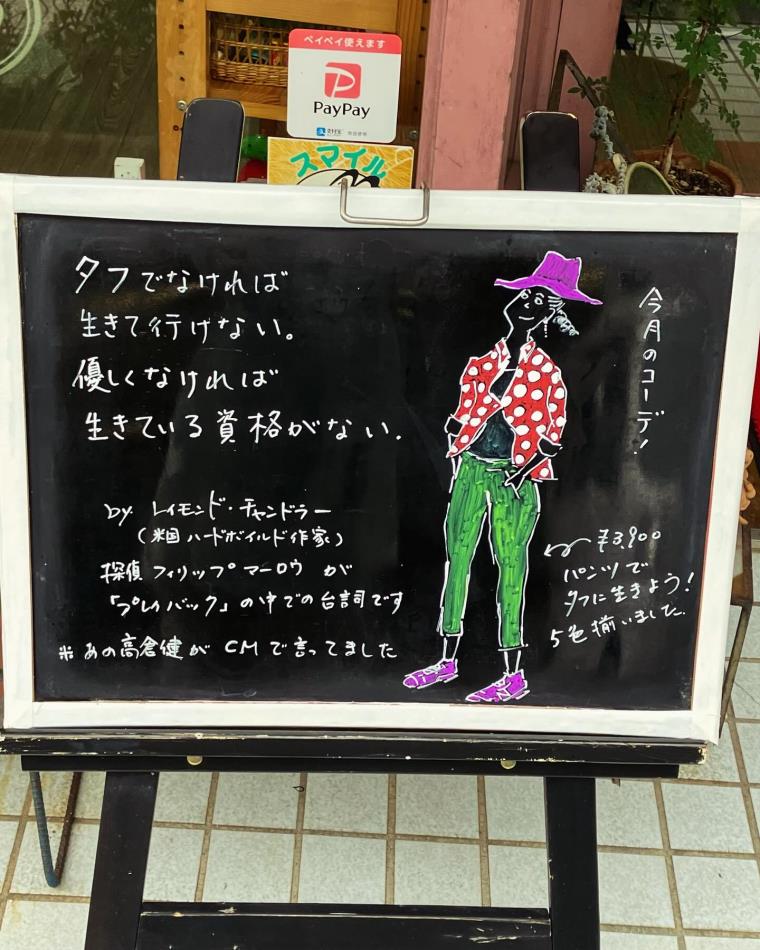 ペイペイ使えます
PayPay
スマイル
タフでなければ
生きて行けない。
優しくなければ
生きている資格がない.
by レイモンド・チャンドラー
(米国ハードボイルド作家)
探偵フィリップマーロウ が
「プレイバック」の中での台詞です
※ あの高倉健が CMで言ってました
今月のコーデ!
¥3,900
パンツで
タフに生きよう!
5色揃いました.